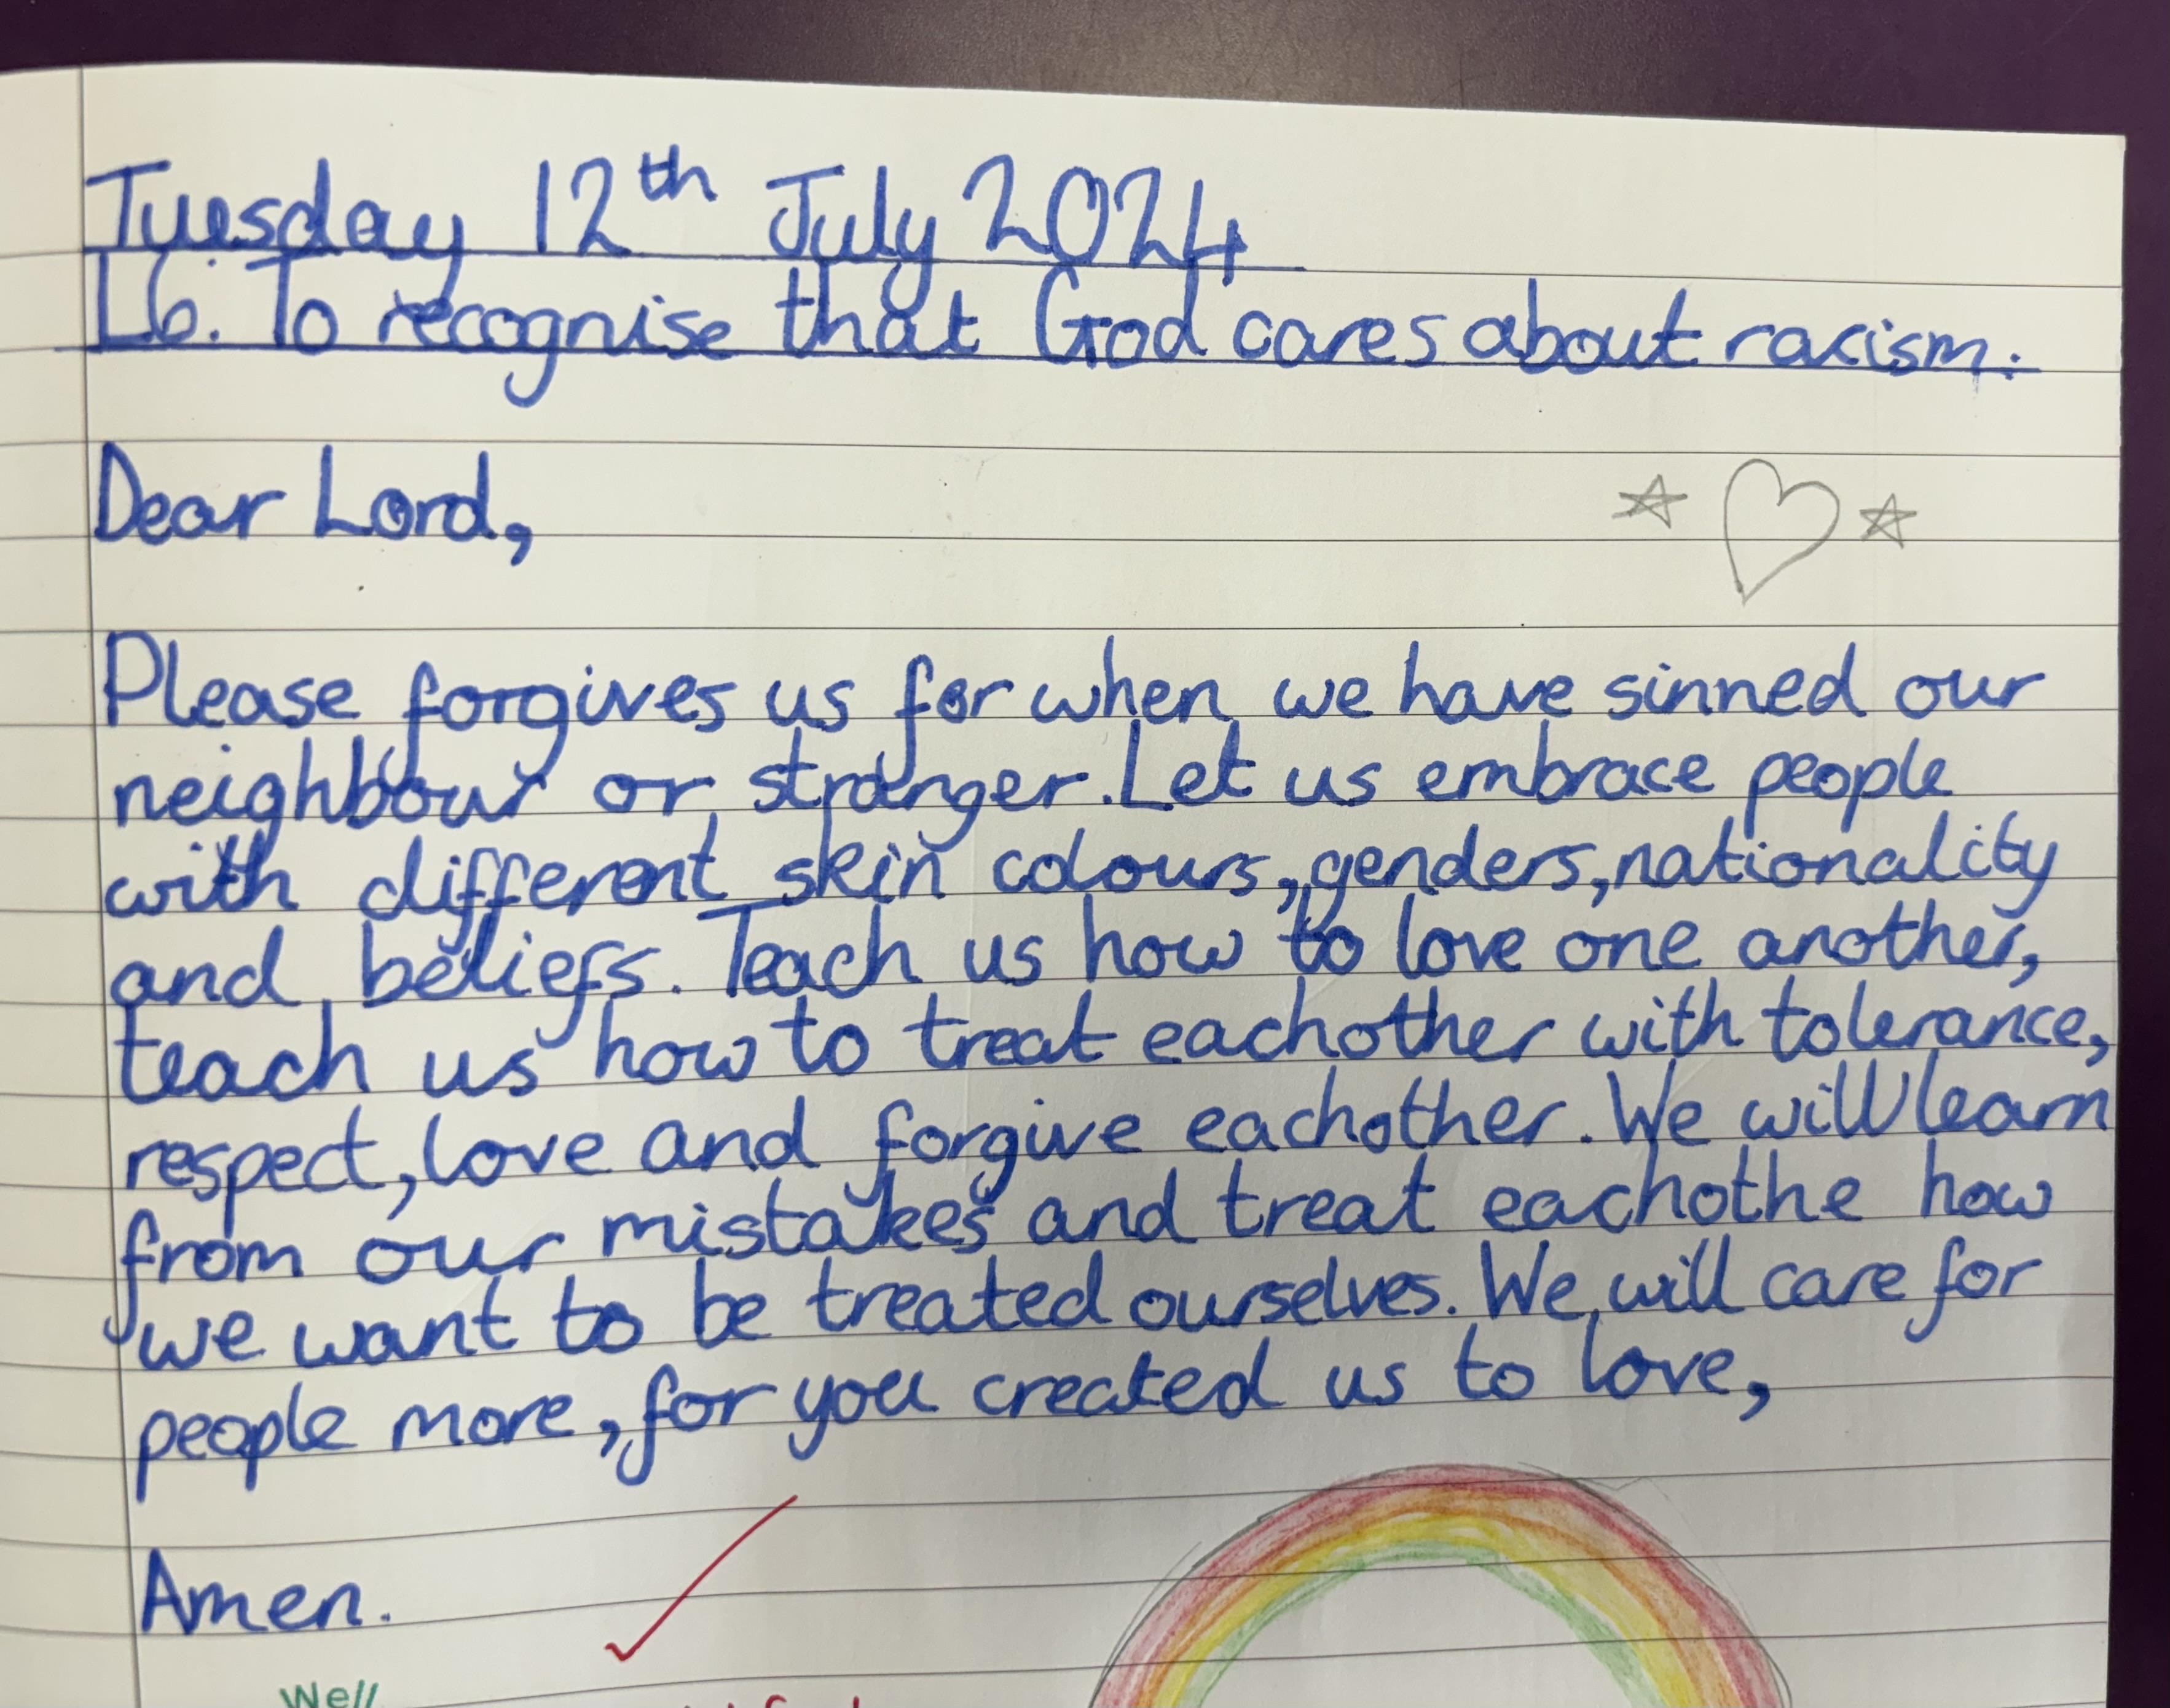 Tuesday 12th July 2024
L6. To recognise that God cares about racism.
Dear Lord,
Please forgives us for when we have sinned our
neighbour or stranger. Let us embrace people
with different skin colours, genders, nationality
and beliefs. Teach us how to love one another,
teach us how to treat eachother with tolerance,
respect, love and forgive eachother. We will learn
from our mistakees and treat eachothe how
we want to be treated ourselves. We will care for
people more, for you created us to love,
Amen.
Well